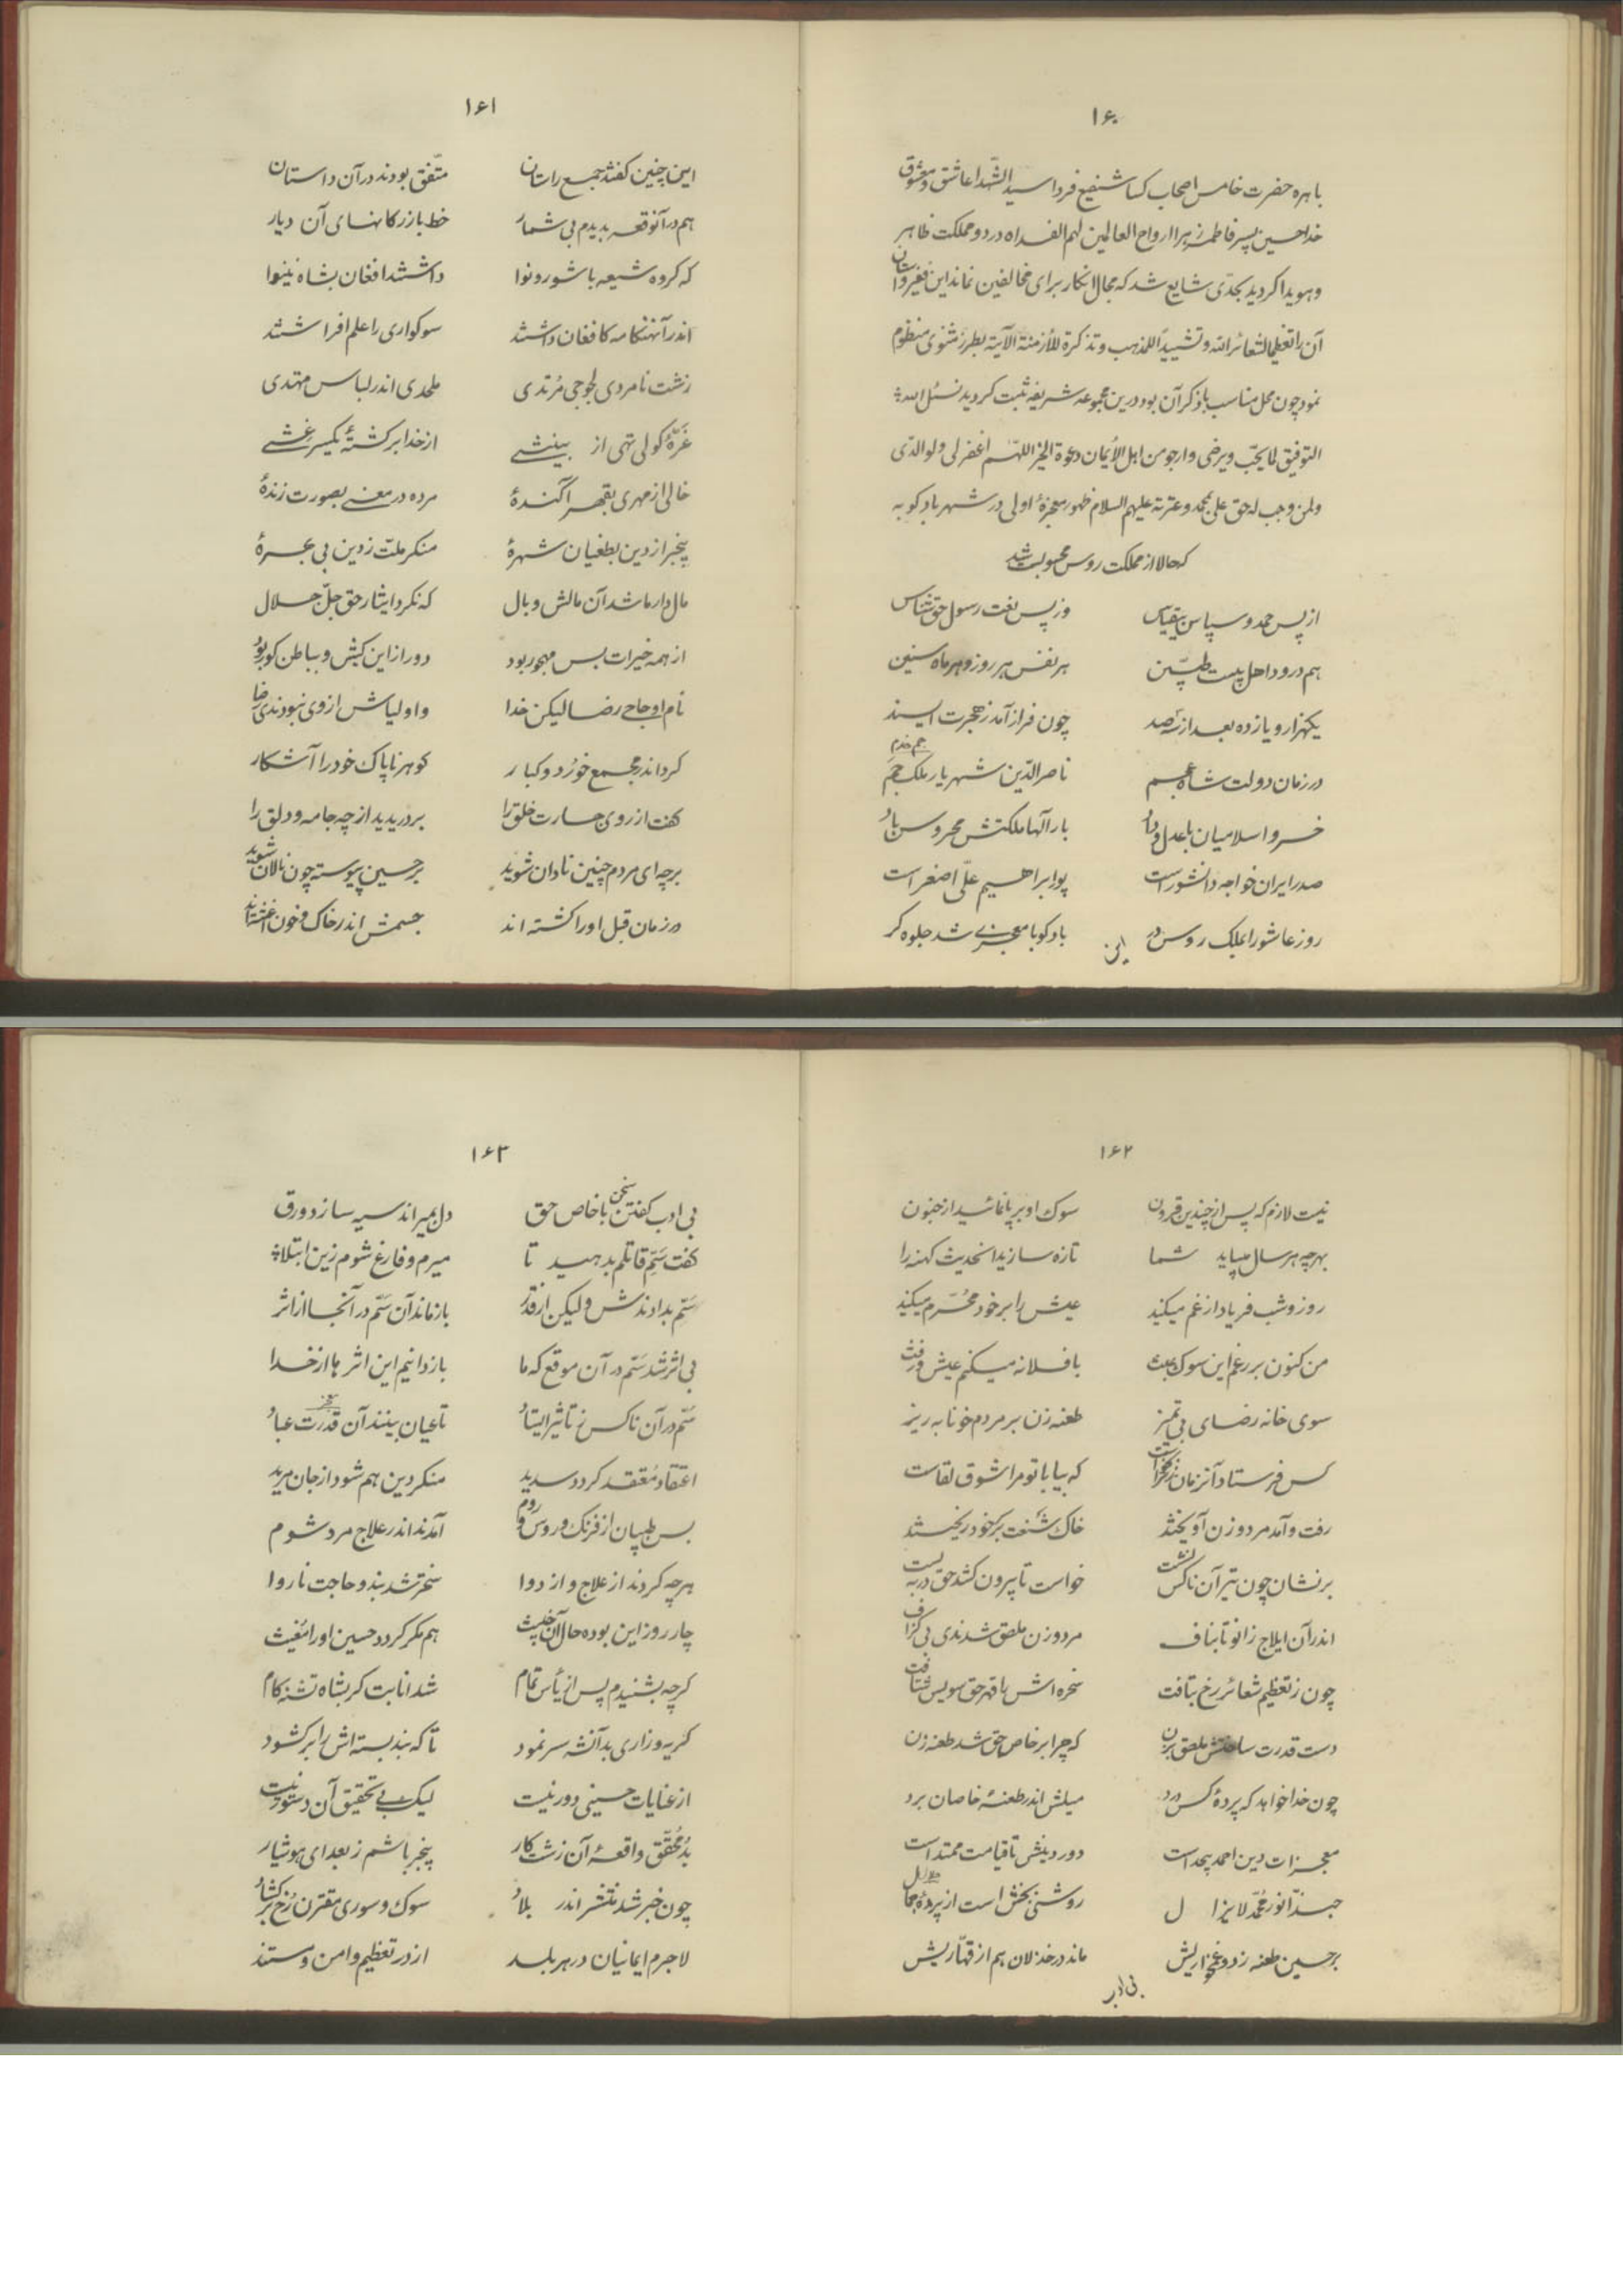 ۱۶۰
باهره حضرت خامس اصحاب کسا شفیع فردا سید الشهدا عاشق و معشوق
خدا حسین پسر فاطمه زهرا ارواح العالمین لهم الفداه در دو مملکت ظاهر
و هویدا کردید بحدی شایع شد که مجال انکار برای مخالفین نماند این فقیر داستان
آن را تعظیما لشعائر الله و تشییدا للمذهب و تذکرة للأزمنة الآتیة بطرز مثنوی منظوم
نمود چون محل مناسب با ذکر آن بود درین مجموعه شریفه ثبت کردید نسئل الله
التوفیق لما یحب و یرضی و ارجو من اهل الأیمان دعوة الخیر اللهم اغفر لی ولوالدی
ولمن وجب له حق علی بمحمد و عترته علیهم السلام ظهور معجزهٔ اولی در شهر بادکوبه
که حالا از مملکت روس محسوبست شد
از پس حمد و سپاس بیقیاس وز پس نعت رسول حق شناس
هم درود اهل بیت طیبین هر نفس هر روز و هر ماه و سنین
یکهزار و یازده بعد از سه صد چون فراز آمد ز هجرت ای سند
در زمان دولت شاه عجم ناصر الدین شهریار ملک جم
خسرو اسلامیان با عدل و داد بار آلها ملکتش محروس باد
صدر ایران خواجه دانشور است پور ابراهیم علی اصغر است
روز عاشورا بملک روس در بادکوبا معجزی شد جلوه کر
این
۱۶۱
این چنین کفتند جمع راستان متفق بودند در آن داستان
هم در آنوقعه بدیدم بی شمار خط بازرکانهای آن دیار
که کروه شیعه با شور و نوا داشتند افغان بشاه نینوا
اندر آنهنکامه کافغان داشتند سوکواری را علم افراشتند
زشت نامردی لجوجی مرتدی ملحدی اندر لباس مهتدی
غرهٔ کولی تهی از بینشی از خدا برکشتهٔ یکسر غشی
خالی از مهری بقهر آکندهٔ مرده در معنی بصورت زندهٔ
بیخبر از دین بطغیان شهرهٔ منکر ملت ز دین بی بهرهٔ
مال دار ما شد آن مالش وبال که نکرد ایثار حق جل جلال
از همه خیرات بس مهجور بود دور از این کیش و بباطن کور بود
نام او حاجی رضا لیکن خدا و اولیاش از وی نبودندی رضا
کرد اندر مجمع خورد و کبار کوهر ناپاک خود را آشکار
کفت از روی جسارت خلق را بردریدید از چه جامه و دلق را
بر چه ای مردم چنین نادان شوید بر حسین پیوسته چون نالان شوید
در زمان قبل او را کشته اند جسمش اندر خاک و خون آغشته اند
۱۶۲
نیست لازم که پس از چندین قرون سوک او برپا نمائید از جنون
بهر چه هر سال میباید شما تازه سازید انحدیث کهنه را
روز و شب فریاد از غم میکنید عیش را بر خود محرم میکنید
من کنون بر رغم این سوک عبث با فلانه میکنم عیش و رفث
سوی خانه رضای بی تمیز طعنه زن بر مردم خونابه ریز
کس فرستاد آنزمان زنکه خواست که بیا با تو مرا شوق لقاست
رفت و آمد مرد و زن آویختند خاک شنعت بر سر خود ریختند
بر نشان چون تیر آن ناکس نشست خواست تا بیرون کشد حق در ببست
اندر آن ایلاج زانو تا بناف مرد و زن ملصق شدندی بی کزاف
چون ز تعظیم شعائر رخ بتافت سخره اش با قهر حق سویش شتافت
دست قدرت ساختش ملصق بزن که چرا بر خاص حق شد طعنه زن
چون خدا خواهد که پردهٔ کس درد میلش اندر طعنهٔ خاصان برد
معجزات دین احمد بیحد است دور دینش تا قیامت ممتد است
حبذا نور محمد لایزال روشنی بخش است از پردهٔ جلال
بر حسین طعنه زد و غمخواریش ماند در خذلان هم از قهاریش
بی ادب
۱۶۳
بی ادب کفتن سخن با خاص حق دل بمیراند سیه سازد ورق
کفت سم قاتلم بدهید تا میرم و فارغ شوم زین ابتلا
سم بدادندش ولیکن از قدر باز ماند آن سم در آنجا از اثر
بی اثر شد سم در آن موقع که ما باز دانیم این اثرها از خدا
سم در آن ناکس ز تاثیر ایستاد تا عیان بینند آن قدرت عباد
اعتقاد معتقد کردد سدید منکر دین هم شود از جان مرید
بس طبیبان از فرنک و روس و روم آمدند اندر علاج مرد شوم
هر چه کردند از علاج و از دوا سخرتر شد بند و حاجت ناروا
چار روز این بوده حال آن خبیث هم مکر کردد حسین او را مغیث
کرچه بشنیدم پس از یأس تمام شد انابت کر بشاه تشنه کام
کریه و زاری بدآنشه سر نمود تا که بند بسته اش را برکشود
از عنایات حسینی دور نیست لیک بی تحقیق آن دستور نیست
بد محقق واقعهٔ آن زشت کار بیخبر باشم ز بعد ای هوشیار
چون خبر شد منتشر اندر بلاد سوک و سوری مقترن رخ برکشاد
لاجرم ایمانیان در هر بلد از در تعظیم و امن و مستند